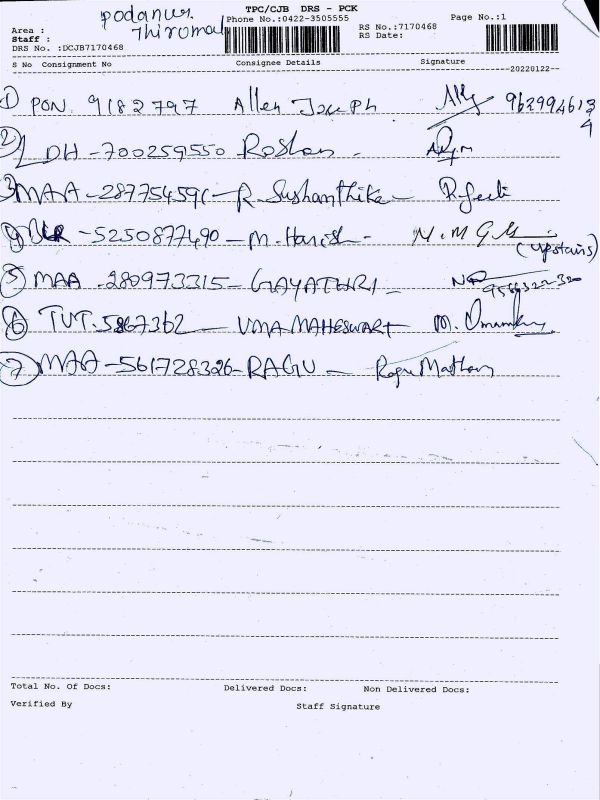 TPC/CJB DRS - PCK
Podanur
Phone No.:0422-3505555
Page No.:1
Area :
Thiromal
RS No.:7170468
Staff :
RS Date:
DRS No. :DCJB7170468
S No Consignment No Consignee Details Signature
20220122
1 PON. 9182797 Allen Joseph
2 DH - 700259550 Roshan -
3 MAA - 287754591 - R. Sushanthika -
4 - 5250877490 - M. Harish -
(upstairs)
5 MAA - 280973315 - GAYATHRI -
6 TUT. 5867362 - UMA MAHESWARI
7 MAA - 561728326 - RAGU -
Total No. Of Docs: Delivered Docs: Non Delivered Docs:
Verified By Staff Signature